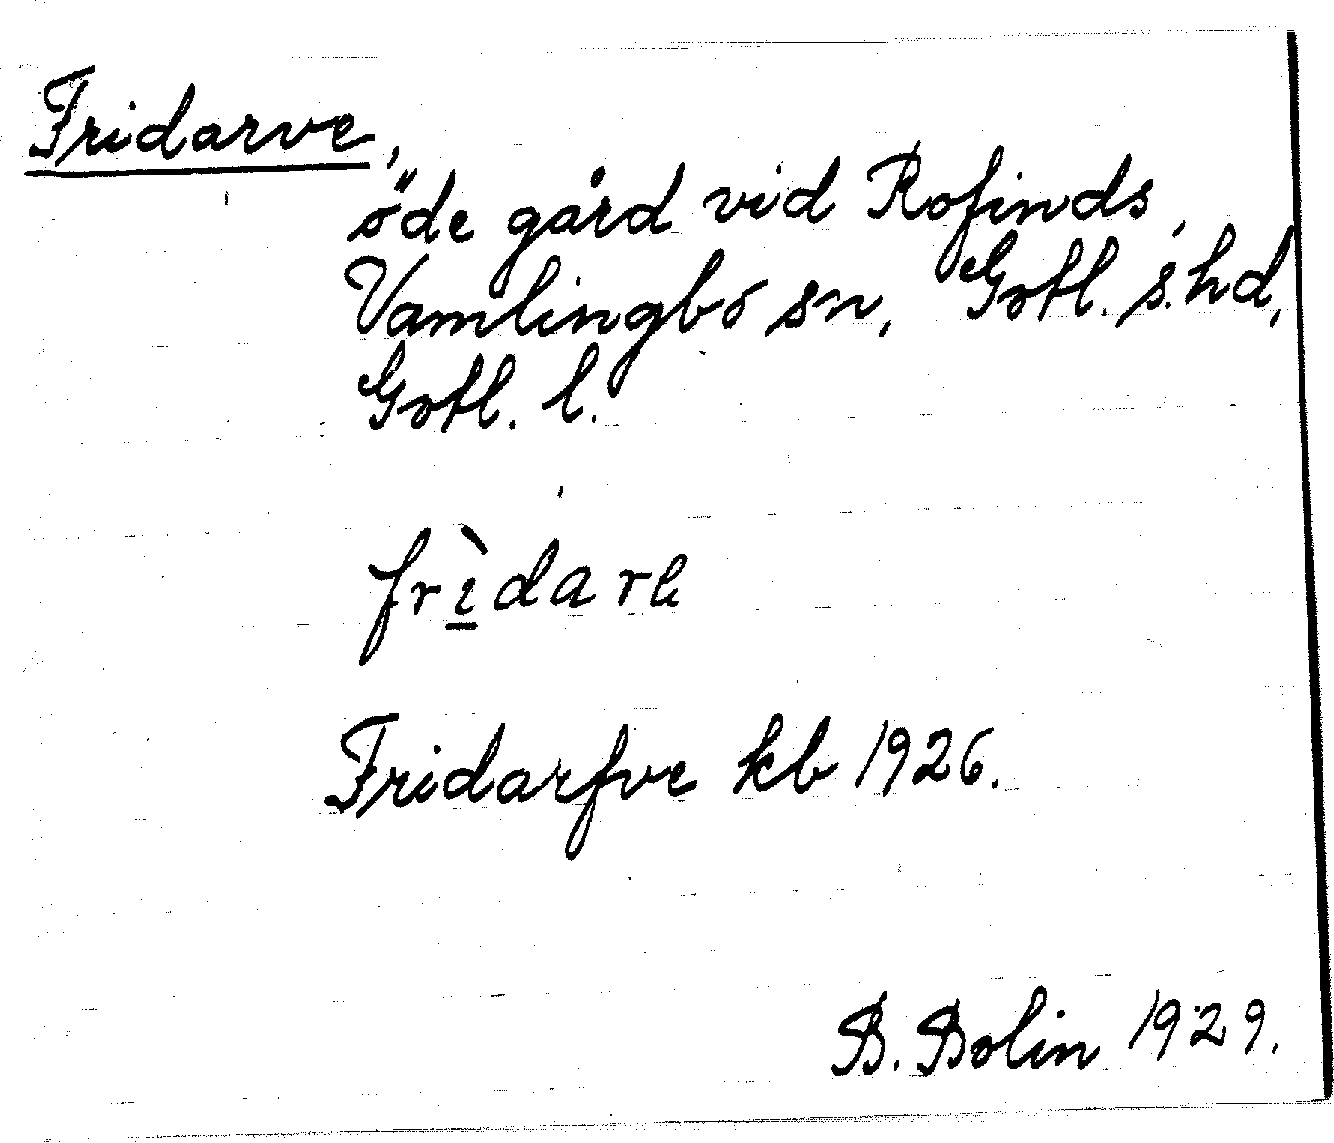 Fridarve,
öde gård vid Rofinds,
Vamlingbo sn, Gotl. s. hd,
Gotl. l.
frìdarɐ
Fridarfve kb 1926.
B. Bolin 1929.